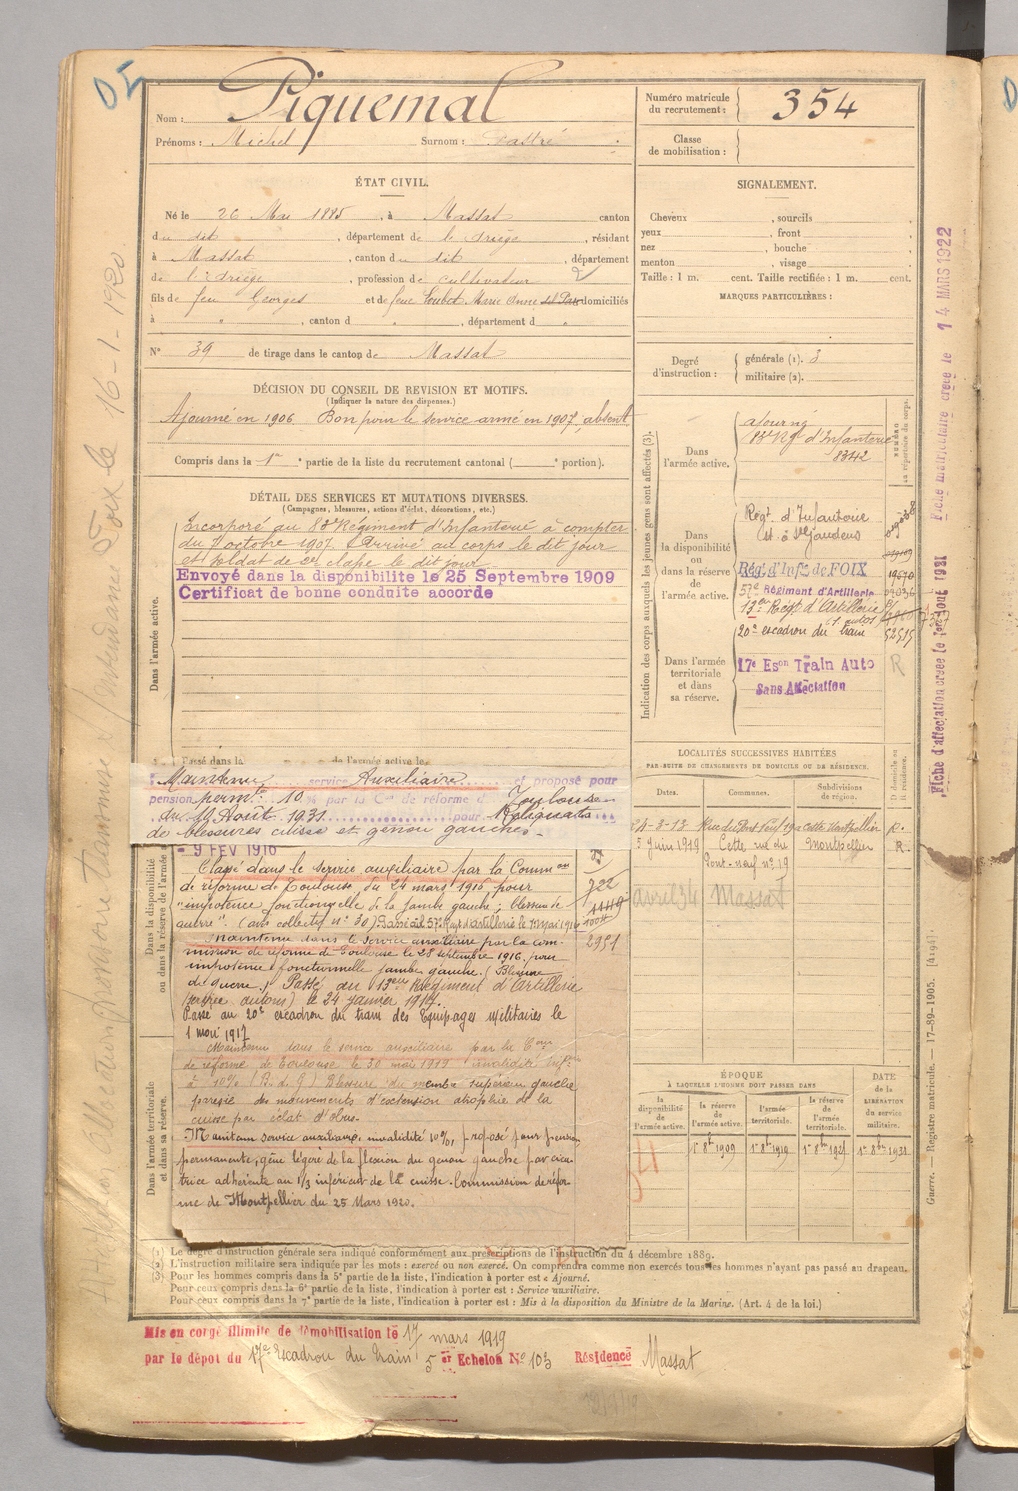 Nom : Piquemal
Prénoms : Michel Surnom :
Numéro matricule du recrutement : 354
Classe de mobilisation :
ÉTAT CIVIL.
Né le 26 Mai 1885, à Massat canton
du dit, département de l'Ariège, résidant
à Massat, canton du dit, département
de l'Ariège, profession de cultivateur
fils de feu Georges et de feue Loubet Marie domiciliés
à " , canton d " , département d "
N° 39 de tirage dans le canton de Massat
DÉCISION DU CONSEIL DE REVISION ET MOTIFS.
(Indiquer la nature des dispenses.)
Ajourné en 1906 Bon pour le service armé en 1907 absent
Compris dans la 1re partie de la liste du recrutement cantonal ( portion).
DÉTAIL DES SERVICES ET MUTATIONS DIVERSES.
(Campagnes, blessures, actions d'éclat, décorations, etc.)
Dans l'armée active.
Incorporé au 83e Régiment d'Infanterie à compter
du 7 octobre 1907 Arrivé au corps le dit jour
et soldat de 2e classe le dit jour
Envoyé dans la disponibilité le 25 Septembre 1909
Certificat de bonne conduite accordé
Maintenu service Auxiliaire et proposé pour
pension perm.te 10 % par la Con de réforme d Toulouse
du 19 Août 1931 pour Reliquats
de blessures cuisse et genou gauches.
- 9 FEV 1916
Classé dans le service auxiliaire par la Common
de réforme de Toulouse du 24 mars 1916 pour
"impotence fonctionnelle de la jambe gauche ; blessure de
guerre" (avis collectif n° 30) Passé au 57e Rég d'artillerie le 1 mai 1916
Maintenu dans le service auxiliaire par la com-
mission de réforme de Toulouse le 28 septembre 1916 pour
impotence fonctionnelle jambe gauche. (Blessure
de guerre.) Passé au 13eme Régiment d'Artillerie
le 24 janvier 1917.
Passé au 20e escadron du train des Equipages Militaires le
1 mai 1917
Maintenu dans le service auxiliaire par la Com
de réforme de Toulouse le 30 mai 1919 invalidité inf
à 10% (B. d. G) Blessure du membre supérieur gauche
parésie des mouvements d'extension atrophie de la
cuisse par éclat d'obus.
Maintenu service auxiliaire, invalidité 10% proposé pour pension
permanente, gêne légère de la flexion du genou gauche par cica-
trice adhérente au 1/3 inférieur de la cuisse. Commission de réfor-
me de Montpellier du 25 Mars 1920.
Dans la disponibilité ou dans la réserve de l'armée a
Dans l'armée territoriale et dans sa réserve.
722
2981
SIGNALEMENT.
Cheveux , sourcils
yeux , front
nez , bouche
menton , visage
Taille : 1 m. cent. Taille rectifiée : 1 m. cent.
MARQUES PARTICULIÈRES :
Degré d'instruction : générale (1). 3
militaire (2).
Indication des corps auxquels les jeunes gens sont affectés (3).
Dans l'armée active.
ajourné
83e Rgt d'Infanterie
8342
Dans la disponibilité ou dans la réserve de l'armée active.
Régt d'Infanterie
St Gaudens
Rég. d'Infie de FOIX
57e Régiment d'Artillerie
13e Régt d'Artillerie
20e escadron du train
Dans l'armée territoriale et dans sa réserve.
17e Eson Train Auto
Sans Affectation
R
LOCALITÉS SUCCESSIVES HABITÉES
PAR SUITE DE CHANGEMENTS DE DOMICILE OU DE RÉSIDENCE.
Dates. Communes. Subdivisions de région. D domicile ou R résidence.
24-3-13 Rue du Pont Neuf 19 à Cette Montpellier R.
5 Juin 1919 Cette rue du Pont-neuf n° 19 Montpellier R.
avril 34 Massat
ÉPOQUE
À LAQUELLE L'HOMME DOIT PASSER DANS
DATE DE LA LIBÉRATION du service militaire.
la disponibilité de l'armée active. la réserve de l'armée active. l'armée territoriale. la réserve de l'armée territoriale.
1er 8bre 1909 1er 8bre 1919 1er 8bre 1925 1er 8bre 1931
(1) Le degré d'instruction générale sera indiqué conformément aux prescriptions de l'instruction du 4 décembre 1889.
(2) L'instruction militaire sera indiquée par les mots : exercé ou non exercé. On comprendra comme non exercés tous les hommes n'ayant pas passé au drapeau.
(3) Pour les hommes compris dans la 5e partie de la liste, l'indication à porter est « Ajourné.
Pour ceux compris dans la 6e partie de la liste, l'indication à porter est : Service auxiliaire.
Pour ceux compris dans la 7e partie de la liste, l'indication à porter est : Mis à la disposition du Ministre de la Marine. (Art. 4 de la loi.)
Mis en congé illimité de démobilisation le 17 mars 1919
par le dépôt du 17e Escadron du train 5 er Echelon N° 103 Résidence Massat
Fiche matriculaire créée le 14 MARS 1922
Fiche d'affectation créée le 1er Août 1921
Guerre. — Registre matricule. — 17-89-1905. [4194].
Foix le 16-1-1920.